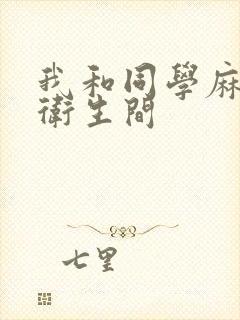 我和同學麻
衛生間
七里